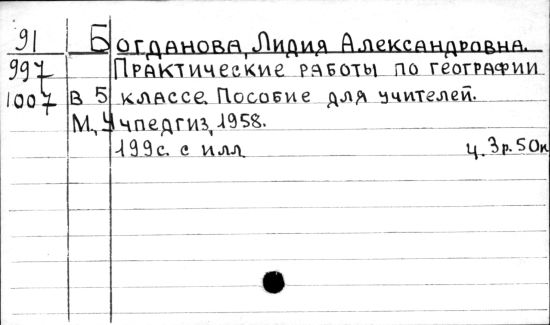 91 Богданова, Лидия Александровна.
997 Практические работы по географии
1007 в 5 классе. Пособие для учителей.
М., Учпедгиз, 1958.
199с. с илл ц. 3р. 50к